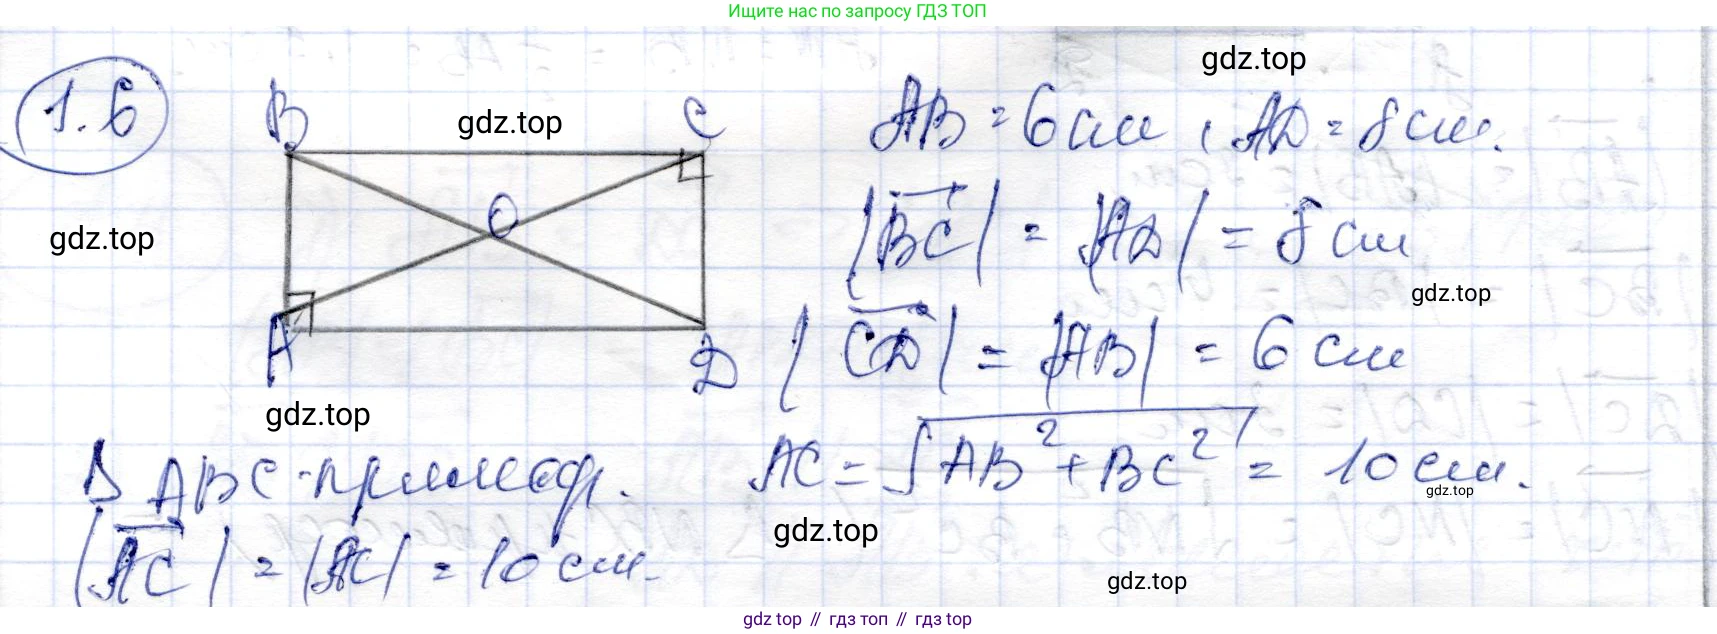 Ищите нас по запросу ГДЗ ТОП
1.6
B
gdz.top
C
gdz.top
AB = 6 см, AD = 8 см.
O
gdz.top
|BC| = |AD| = 8 см
gdz.top
A
D
|CD| = |AB| = 6 см
gdz.top
В ABC - прямоуг.
AC = √AB² + BC² = 10 см.
gdz.top
gdz.top
|AC| = |AC| = 10 см.
gdz.top
gdz top // гдз топ // гдз top